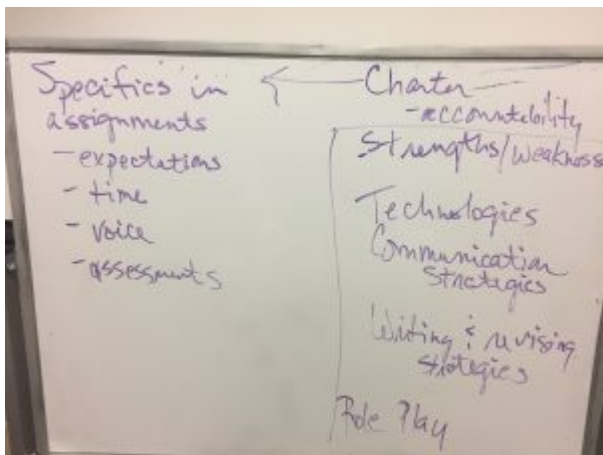 Specifics in
assignments
- expectations
- time
- voice
- assessments
Charter
- accountability
Strengths/Weakness
Technologies
Communication
Strategies
Writing & revising
strategies
Role Play